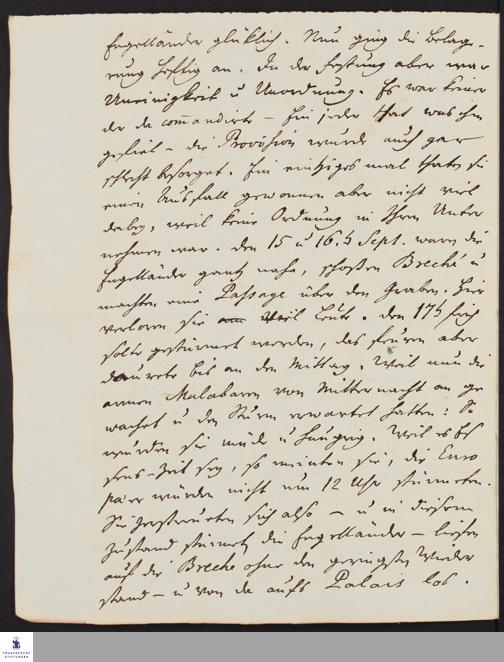 Engelländer glücklich. Nun ging die Belage-
rung hefftig an. In der Festung aber war
Uneinigkeit u Unordnung. Es war keiner
der da com̄andirte – Ein jeder that was ihm
gefiel – die Provision wurde auch gar
schlecht besorget. Ein einziges mal thaten sie
einen Ausfall gewonnen aber nicht viel
dabey, weil keine Ordnung in Ihren Unter
nehmen war. den 15 u 16.t Sept. waren die
Engelländer gantz nahe, schoßen Breche u
machten eine Passage über den Graben. hier
verloren sie viel Leute. den 17t früh
solte gestürmet werden, das feuren aber
daurete bis an den Mittag. Weil nun die
armen Malabaren von Mitternacht an ge
wachet u den Sturm erwartet hatten: So
wurden sie müde u hungrig. Weil es Eß
sens-Zeit sey, so meinten sie, die Euro
päer würden nicht um 12 Uhr stürmen.
Sie zerstreueten sich also – u in diesem
Zustand stürmeten die Engelländer – liefen
auf die Breche ohne den geringsten Wieder
stand – u von da aufs Palais los.
FRANCKESCHE
STIFTUNGEN